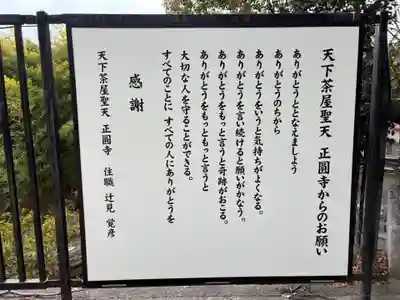 天下茶屋聖天 正圓寺からのお願い
ありがとうととなえましょう
ありがとうのちから
ありがとうをいうと気持ちがよくなる。
ありがとうを言い続けると願いがかなう。
ありがとうをもっと言うと奇跡がおこる。
ありがとうをもっともっと言うと
大切な人を守ることができる。
すべてのことに すべての人にありがとうを
感謝
天下茶屋聖天 正圓寺 住職 辻見 覚彦